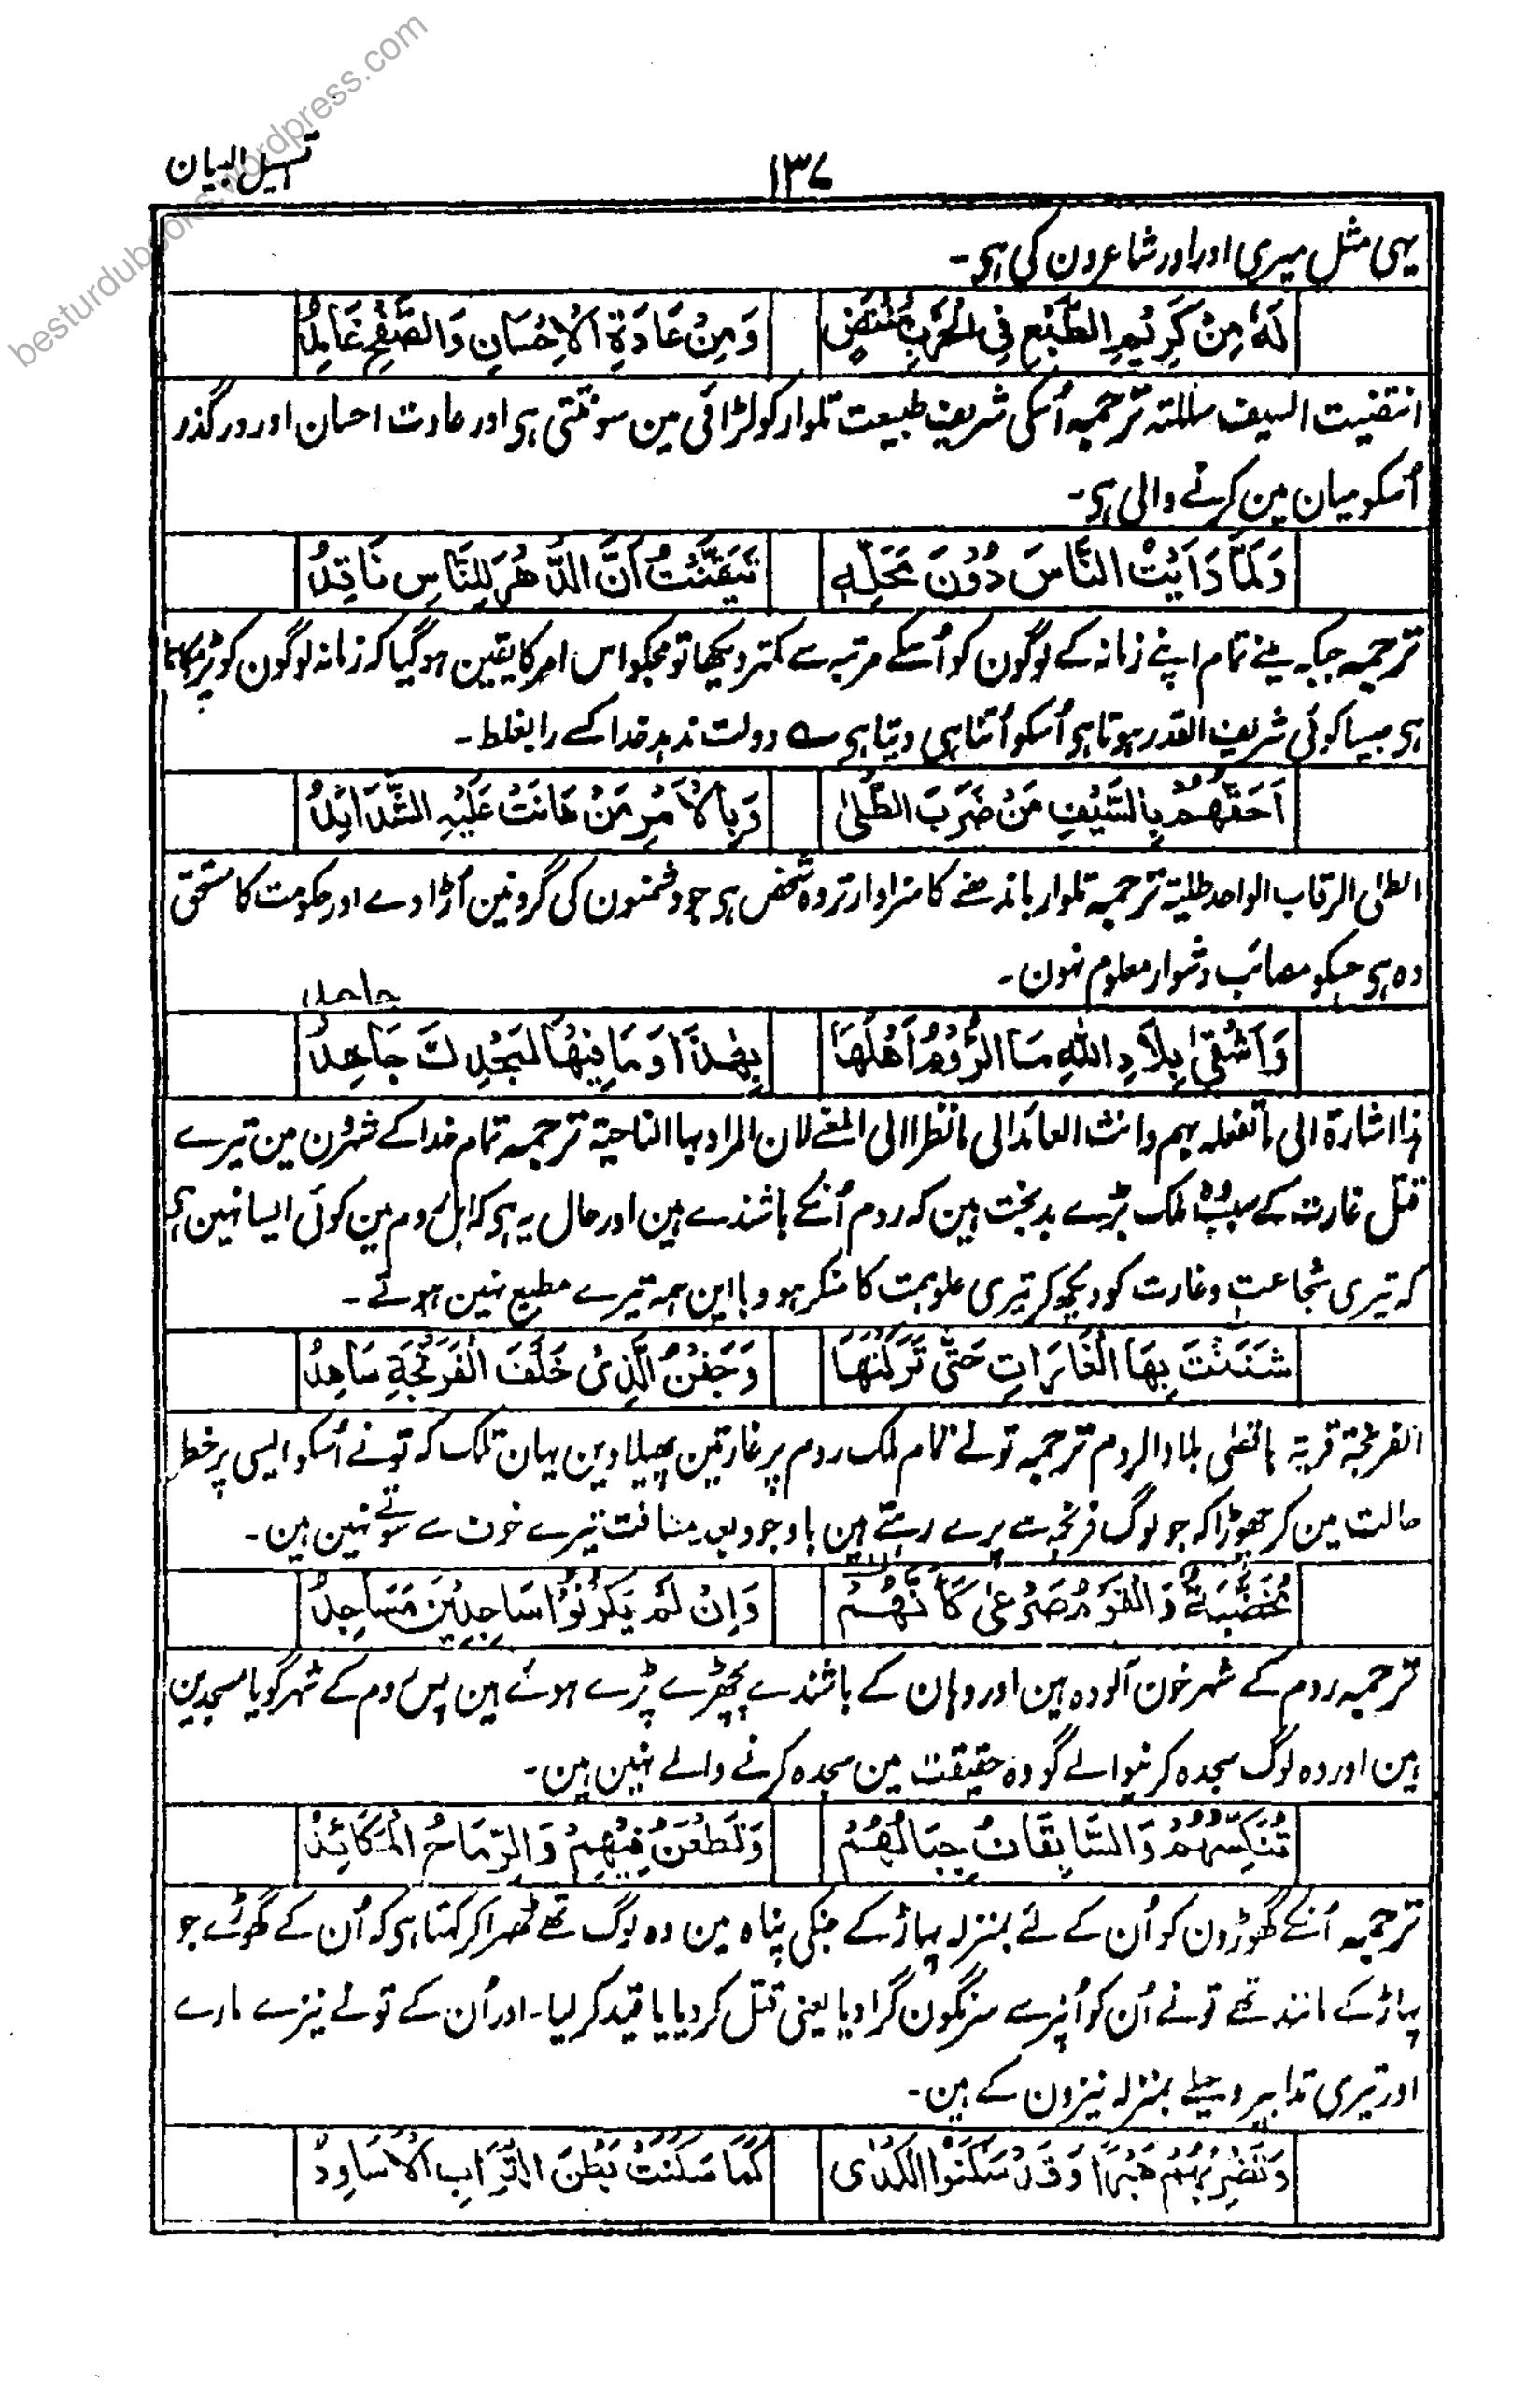 besturdubooks.wordpress.com
تسہیل البیان
۱۳۷
یہی مثل میری اور اور شاعرون کی ہی۔
لَهٗ مِنْ كَرِيْمِ الطَّبْعِ فِي الْحَرْبِ مُنْتَضٍ وَمِنْ عَادَةِ الْاِحْسَانِ وَالصَّفْحِ غَامِدُ
انتضیت السیف سللتہ ترجمہ اُسکی شریف طبیعت تلوار کو لڑائی مین سونتتی ہی اور عادت احسان اور درگذر
اُسکو میان مین کرنے والی ہی۔
وَلَمَّا رَاَيْتُ النَّاسَ دُوْنَ مَحَلِّهٖ تَيَقَّنْتُ اَنَّ الدَّهْرَ لِلنَّاسِ نَاقِدُ
ترجمہ جبکہ مینے تمام اپنے زمانہ کے لوگون کو اُسکے مرتبہ سے کمتر دیکھا تو مجکو اس امر کا یقین ہوگیا کہ زمانہ لوگون کو پرکھتا
ہی جیسا کوئی شریف القدر ہوتا ہی اُسکو اُتنا ہی دیتا ہی ؎ دولت ندہد خدا کسے را بغلط۔
اَحَقُّهُمْ بِالسَّيْفِ مَنْ ضَرَبَ الطُّلٰى وَبِالْاَمْرِ مَنْ هَانَتْ عَلَيْهِ الشَّدَائِدُ
الطلی الرقاب الواحد طلیۃ ترجمہ تلوار باندھنے کا سزاوار تر وہ شخص ہی جو دشمنون کی گردنین اُڑا دے اور حکومت کا مستحق
وہ ہی جسکو مصائب دشوار معلوم نہون۔
جاحد
وَاَشْقٰى بِلَادِ اللهِ مَا الرُّوْمُ اَهْلُهَا بِهٰذَا وَمَا فِيْهَا لِمَجْدِكَ جَاحِدُ
ہذا اشارۃ الی ما تفعلہ بہم وانث العائد الی ما نظرا الی المعنے لان المراد بہا الناحیۃ ترجمہ تمام خدا کے شہرون مین تیرے
قتل غارت کے سبب وہ ملک بڑے بدبخت ہین کہ روم اُنکے باشندے ہین اور حال یہ ہی کہ اہل روم مین کوئی ایسا نہین ہی
کہ تیری شجاعت و غارت کو دیکھ کر تیری علو ہمت کا منکر ہو و با این ہمہ تیرے مطیع نہین ہوتے۔
شَنَنْتَ بِهَا الْغَارَاتِ حَتّٰى تَرَكْتَهَا وَجَفْنُ الَّذِيْ خَلْفَ الْفَرَنْجَةِ سَاهِدُ
الفرنجۃ قریۃ باقصٰی بلاد الروم ترجمہ تونے تمام ملک روم پر غارتین پھیلا دین یہان تلک کہ تونے اُسکو ایسی پرخطر
حالت مین کر چھوڑا کہ جو لوگ فرنجہ سے پرے رہتے ہین باوجود بعد مسافت تیرے خوف سے سوتے نہین ہین۔
مُخَضَّبَةٌ وَالْقَوْمُ صَرْعٰى كَاَنَّهُمْ وَاِنْ لَمْ يَكُوْنُوْا سَاجِدِيْنَ مَسَاجِدُ
ترجمہ روم کے شہر خون آلودہ ہین اور وہان کے باشندے پچھڑے پڑے ہوئے ہین پس روم کے شہر گویا مسجدین
ہین اور وہ لوگ سجدہ کرنیوالے گو وہ حقیقت مین سجدہ کرنے والے نہین ہین۔
تُنَكِّسُهُمْ وَالسَّابِقَاتُ جِبَالُهُمْ وَتَطْعَنُ فِيْهِمْ وَالرِّمَاحُ الْمَكَائِدُ
ترجمہ اُنکے گھوڑون کو اُن کے لئے بمنزلہ پہاڑ کے جنکی پناہ مین وہ لوگ تھے ٹھرا کر کہتا ہی کہ اُن کے گھوڑے جو
پہاڑ کے مانند تھے تونے اُن کو اُنپر سے سرنگون گرا دیا یعنی قتل کر دیا یا قید کر لیا۔ اور اُن کے تونے نیزے مارے
اور تیری تدابیر و حیلے بمنزلہ نیزون کے ہین۔
وَتَضْرِبُهُمْ هَبْرًا وَقَدْ سَكَنُوا الْكُدٰى كَمَا سَكَنَتْ بَطْنَ التُّرَابِ الْاَسَاوِدُ